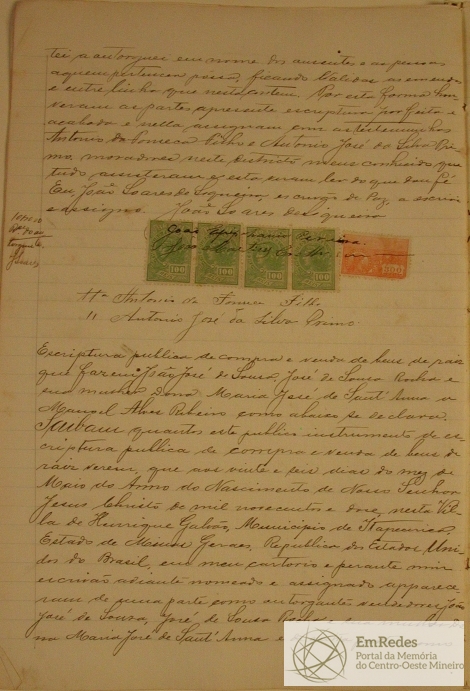 tei, a outorguei em nome dos ausentes e as pessoas
a quem pertencer possa, ficando validas as emendas
e entre linhas que nesta contem. Por esta forma hou
veram as partes a presente escriptura por feita e
acabada e nella assignam com as testemunhas
Antonio da Fonseca Filho e Antonio José da Silva Pri
mo, moradores neste districto meus conhecidos que
tudo assisteram e esta ouviram ler do que dou fé
Eu, João Soares de Siqueira, escrivão de Paz, a escrevi
e assigno. João Soares de Siqueira
100 100 100 100 300
Ttª Antonio da Fonseca Filho
" Antonio José da Silva Primo
Escriptura publica de compra e venda de bens de raiz
que fazem João José de Sousa, José de Sousa Rocha e
sua mulher Dona Maria José de Sant'Anna a
Manoel Alves Ribeiro como abaixo se declara.
Saibam quantos este publico instrumento de es
criptura publica de compra e venda de bens de
raiz virem, que aos vinte e seis dias do mez de
Maio do Anno do Nascimento de Nosso Senhor
Jesus Christo de mil novecentos e doze, nesta Vil
la de Henrique Galvão, Municipio de Itapecerica
Estado de Minas Geraes, Republica dos Estados Uni
dos do Brasil, em meu cartorio e perante mim
escrivão adiante nomeado e assignado, appare
ram de uma parte como outorgantes vendedores João
José de Sousa, José de Sousa Rocha e sua mulher Do
na Maria José de Sant'Anna e
EmRedes
Portal da Memória
do Centro-Oeste Mineiro